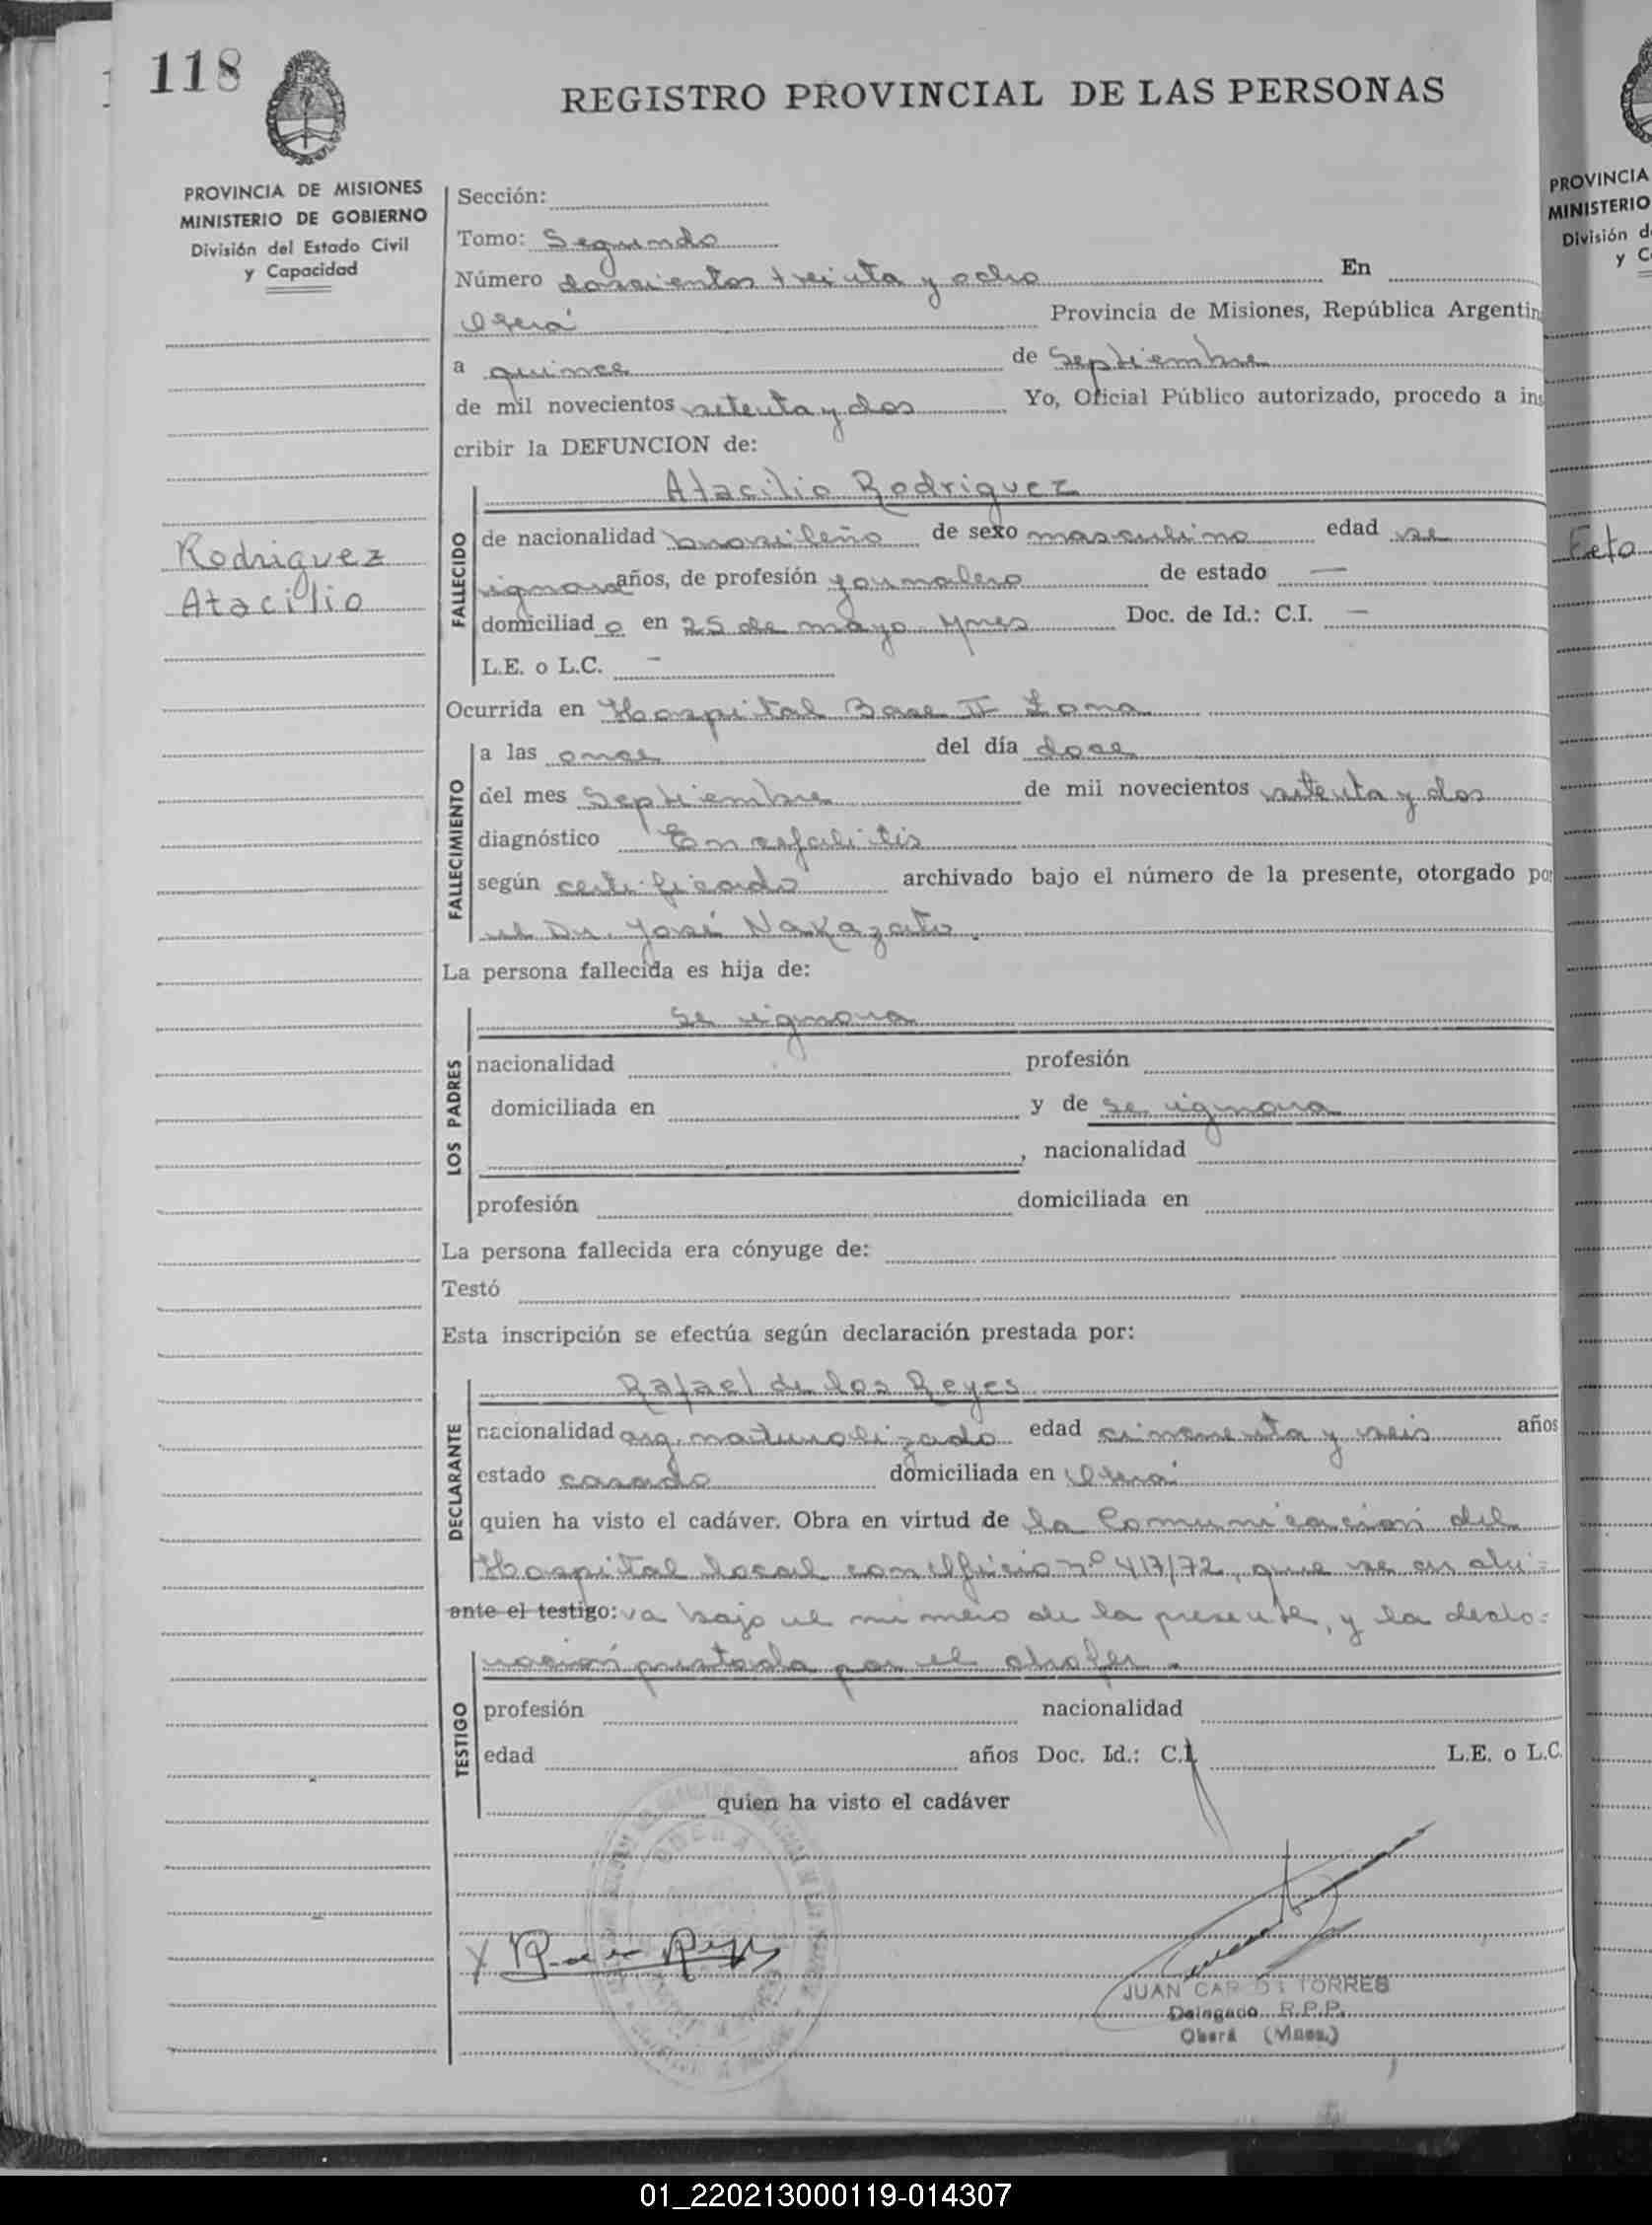 118
REGISTRO PROVINCIAL DE LAS PERSONAS
PROVINCIA DE MISIONES
MINISTERIO DE GOBIERNO
División del Estado Civil
y Capacidad
Rodriguez
Atacilio
Sección:
Tomo: Segundo
Número doscientos treinta y ocho En
Oberá Provincia de Misiones, República Argentin
a quince de Septiembre
de mil novecientos setenta y dos Yo, Oficial Público autorizado, procedo a ins
cribir la DEFUNCION de:
FALLECIDO
Atacilio Rodriguez
de nacionalidad brasileño de sexo masculino edad se
ignora años, de profesión jornalero de estado —
domiciliado en 25 de mayo Mnes Doc. de Id.: C.I. —
L.E. o L.C. —
Ocurrida en Hospital Base II Zona
FALLECIMIENTO
a las once del día doce
del mes Septiembre de mil novecientos setenta y dos
diagnóstico Encefalitis
según certificado archivado bajo el número de la presente, otorgado por
el Dr. José Nakazato.
La persona fallecida es hija de:
LOS PADRES
se ignora
nacionalidad profesión
domiciliada en y de se ignora
, nacionalidad
profesión domiciliada en
La persona fallecida era cónyuge de:
Testó
Esta inscripción se efectúa según declaración prestada por:
DECLARANTE
Rafael de los Reyes
nacionalidad arg. naturalizado edad cincuenta y seis años
estado casado domiciliada en Oberá
quien ha visto el cadáver. Obra en virtud de la Comunicación del
Hospital local con Oficio nº 417/72, que se archi=
ante el testigo: va bajo el número de la presente, y la decla=
ración prestada por el chofer.
TESTIGO
profesión nacionalidad
edad años Doc. Id.: C.I. L.E. o L.C.
quien ha visto el cadáver
OBERA
X
JUAN CARLOS TORRES
Delegado R.P.P.
Oberá (Mnes.)
PROVINCIA
MINISTERIO
División d
y C
Feto
01_220213000119-014307